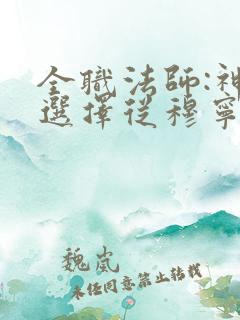 全職法師:神
選擇從穆寧
魏岚
未经同意禁止转载